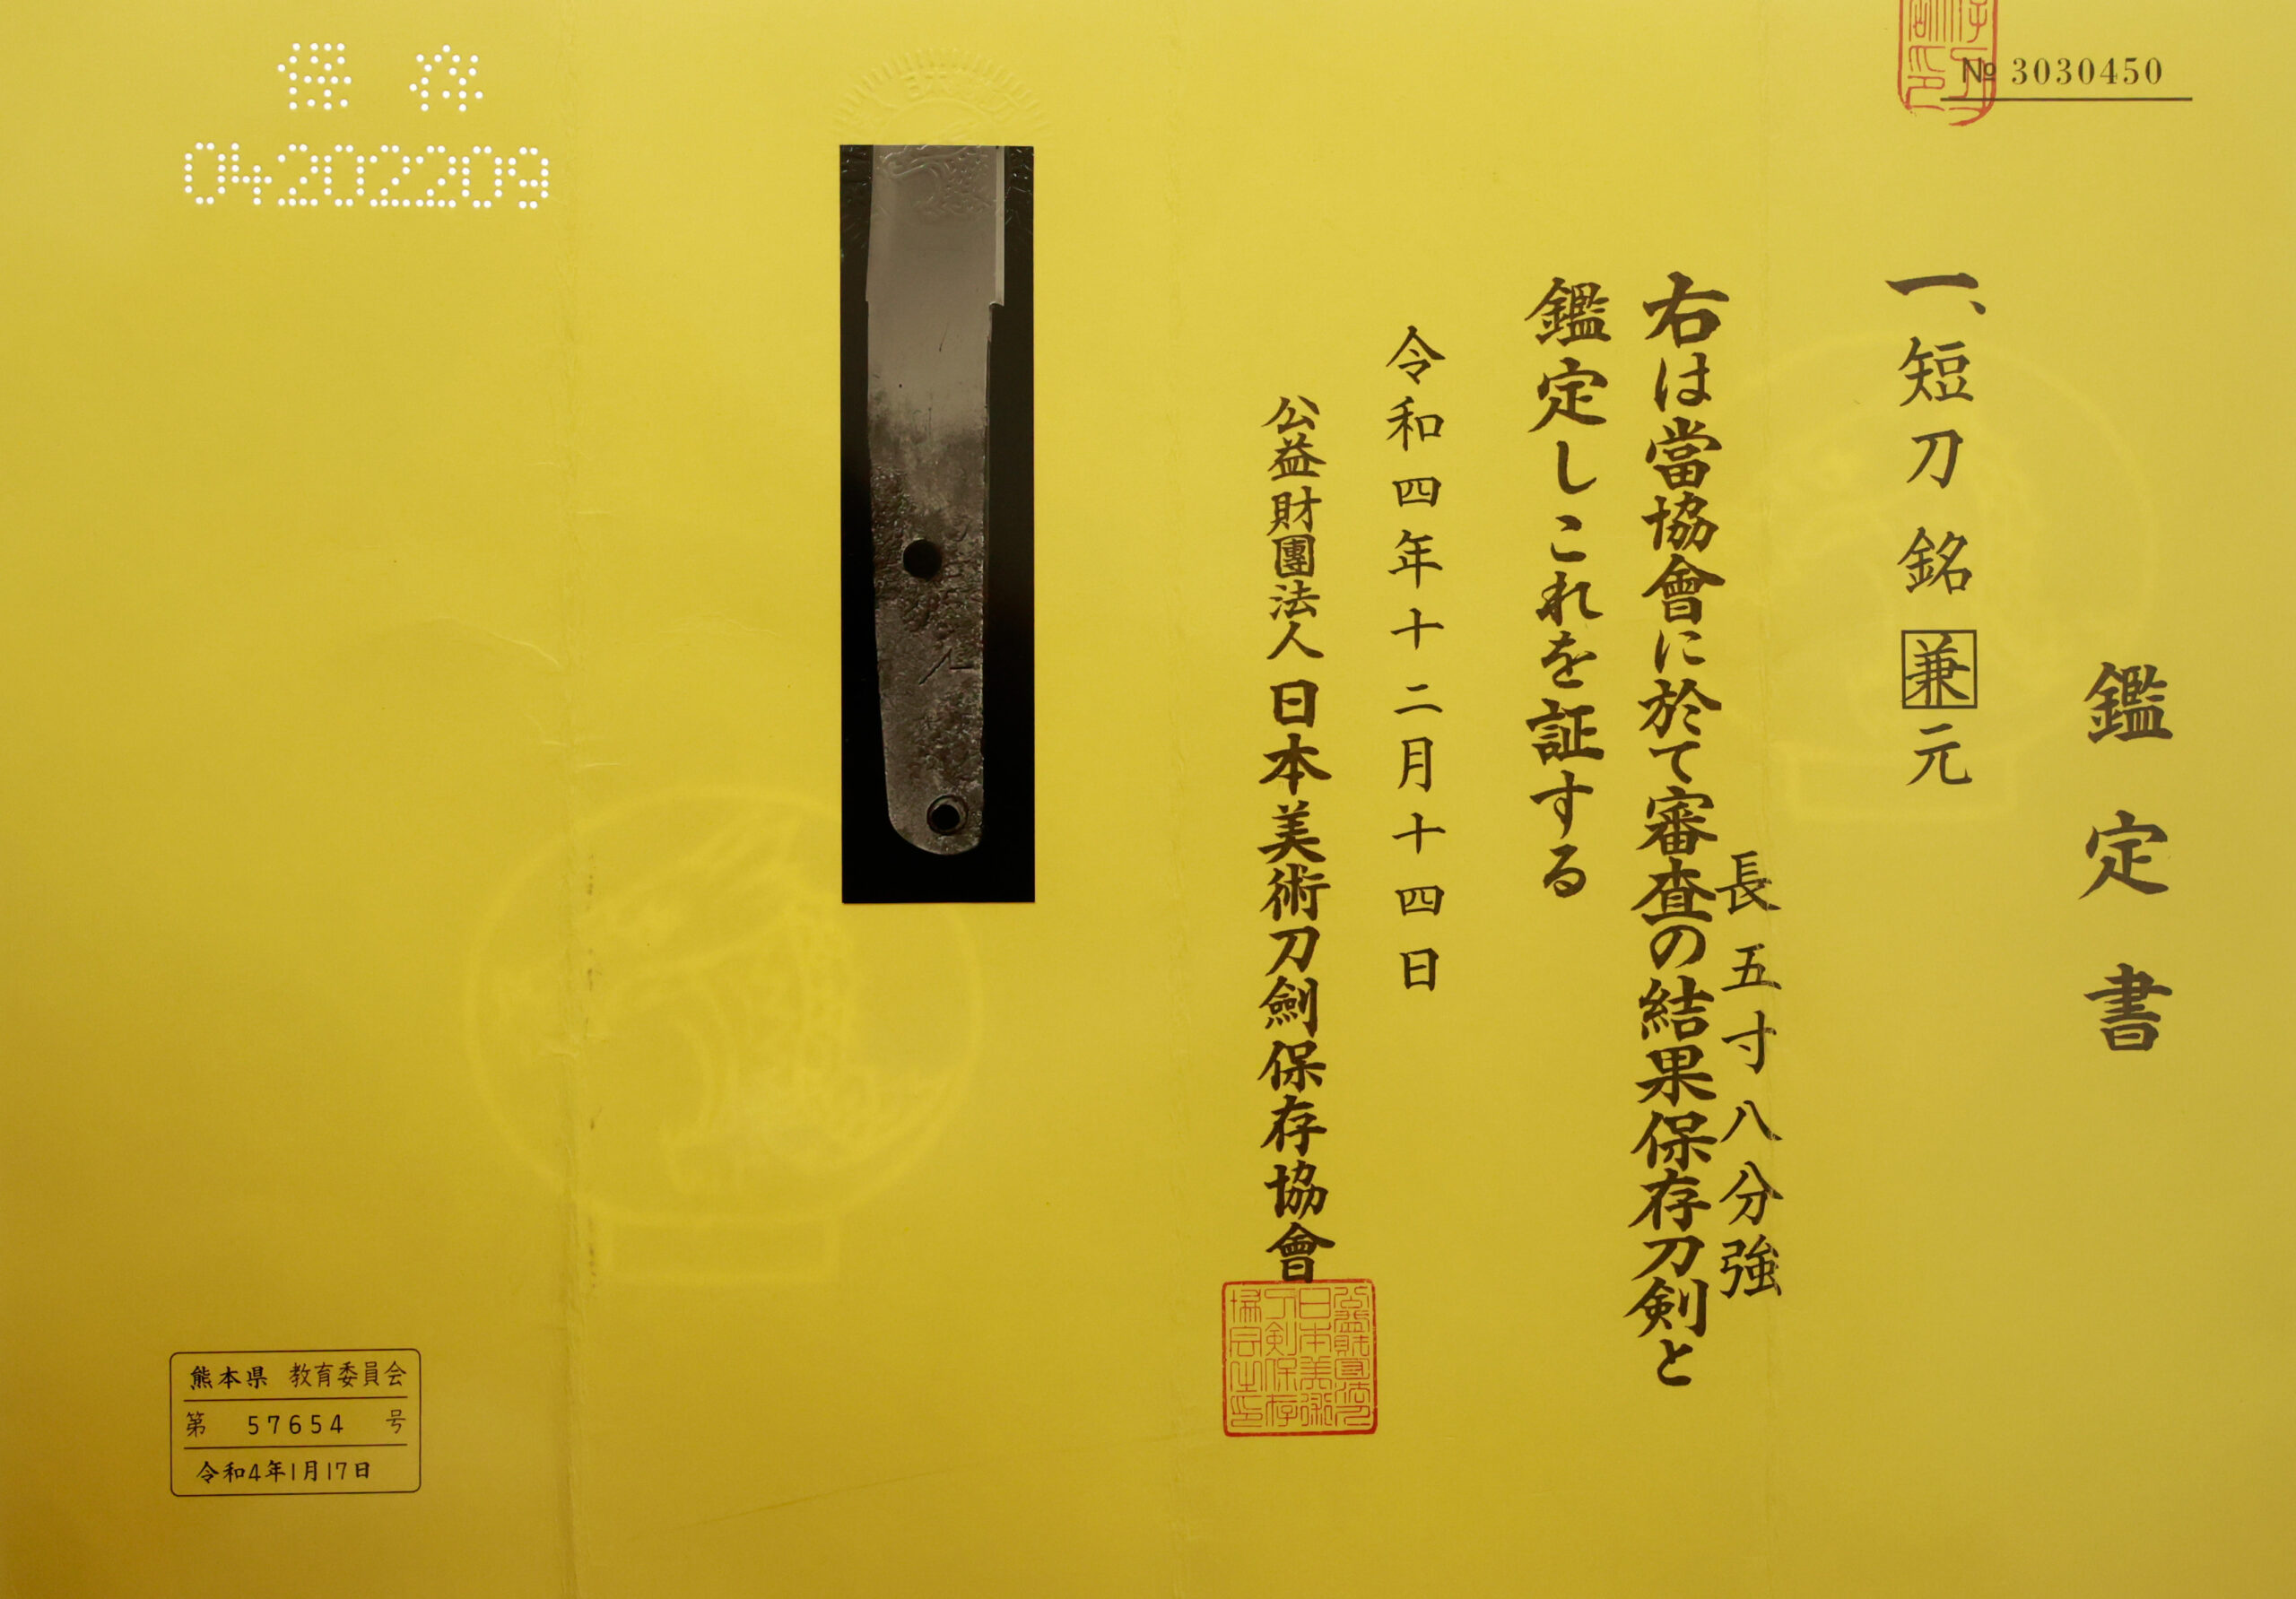 № 3030450
鑑定書
一、短刀 銘 兼元
長五寸八分強
右は當協會に於て審査の結果保存刀剣と
鑑定しこれを証する
令和四年十二月十四日
公益財團法人日本美術刀劍保存協會
保存
04202209
熊本県 教育委員会
第 57654 号
令和4年1月17日